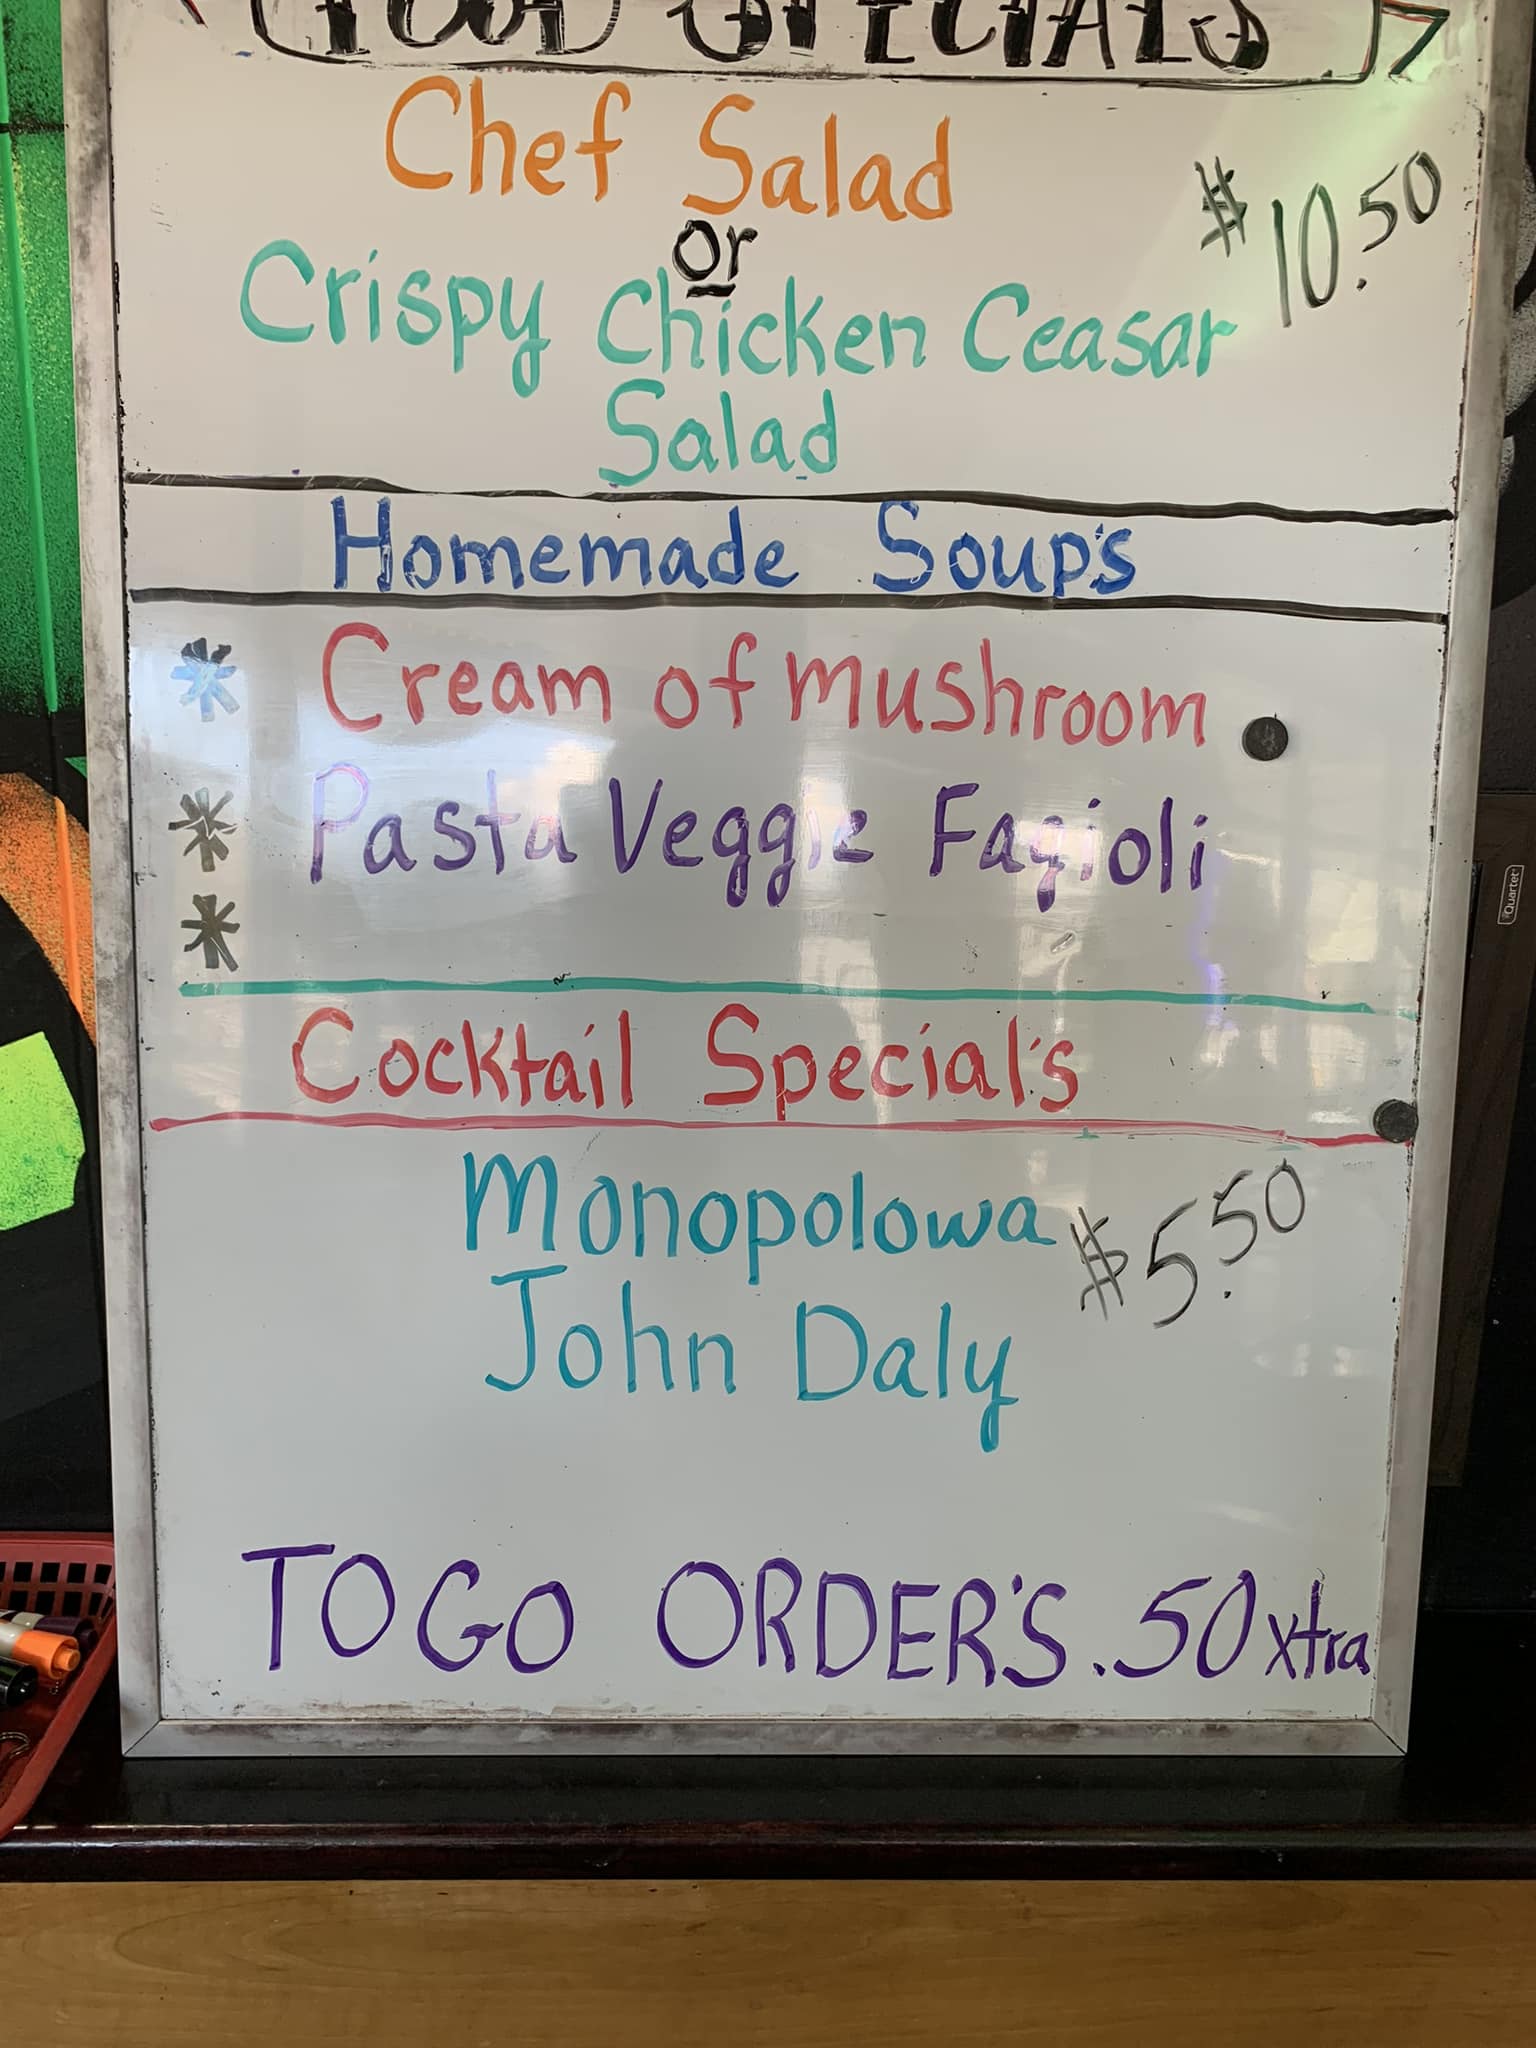 FOOD SPECIALS
Chef Salad
or
$10.50
Crispy Chicken Ceasar
Salad
Homemade Soup's
* Cream of Mushroom
* Pasta Veggie Fagioli
*
Cocktail Special's
Monopolowa $5.50
John Daly
TO GO ORDER'S .50 xtra
Quartet